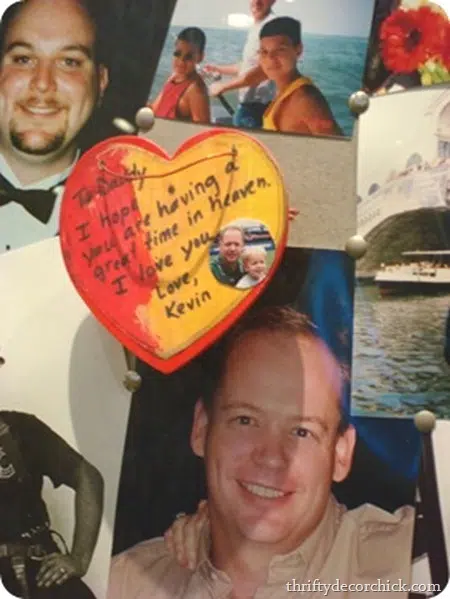 To Daddy
I Hope
you are having a
great time in heaven.
I love you
Love,
Kevin
thriftydecorchick.com